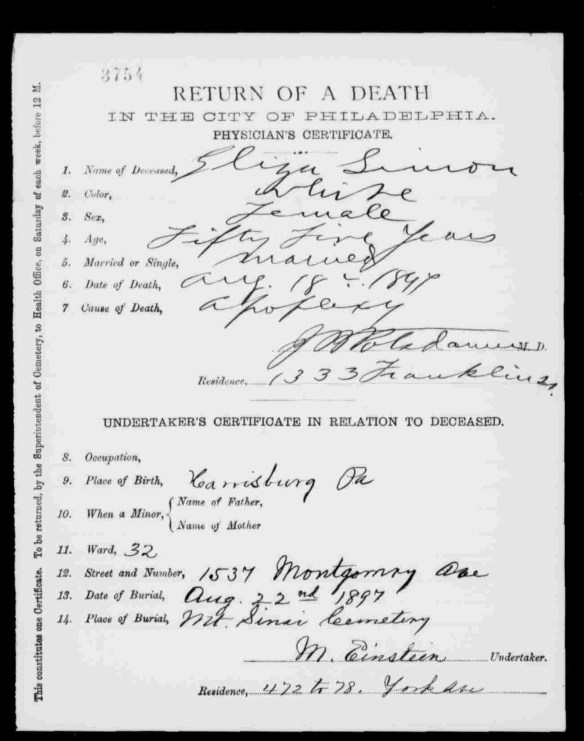 3754
RETURN OF A DEATH
IN THE CITY OF PHILADELPHIA.
PHYSICIAN'S CERTIFICATE.
1. Name of Deceased, Eliza Simon
2. Color, White
3. Sex, Female
4. Age, Fifty Five Years
5. Married or Single, Married
6. Date of Death, Aug. 18 1897
7 Cause of Death, Apoplexy
J B Potsdamer M. D.
Residence, 1333 Franklin St.
UNDERTAKER'S CERTIFICATE IN RELATION TO DECEASED.
8. Occupation,
9. Place of Birth, Harrisburg Pa
10. When a Minor, { Name of Father,
Name of Mother
11. Ward, 32
12. Street and Number, 1537 Montgomry Ave
13. Date of Burial, Aug. 22nd 1897
14. Place of Burial, Mt. Sinai Cemetery
M. Einstein Undertaker.
Residence, 472 to 78. York Ave
This constitutes one Certificate. To be returned, by the Superintendent of Cemetery, to Health Office, on Saturday of each week, before 12 M.